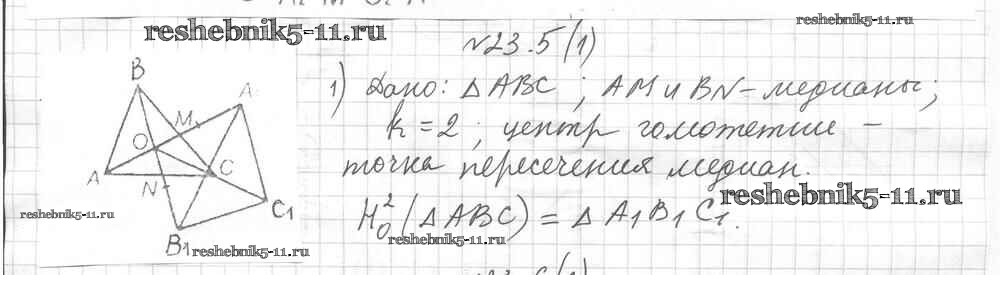 reshebnik5-11.ru
reshebnik5-11.ru
№23.5(1)
1) Дано: △ABC; AM и BN - медианы;
k = 2; центр гомотетии -
точка пересечения медиан.
H₀²(△ABC) = △A₁B₁C₁.
reshebnik5-11.ru
reshebnik5-11.ru
B
A
M
O
A
N
C
C1
B1
reshebnik5-11.ru
reshebnik5-11.ru